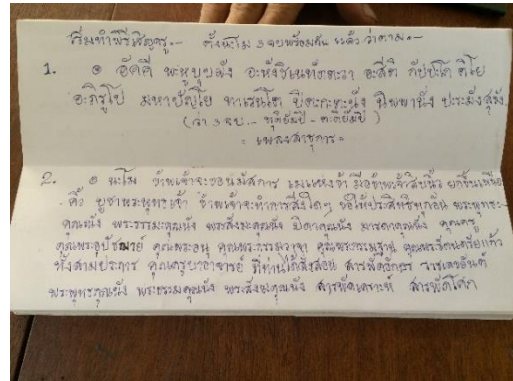 เริ่มทำพิธีเชิญครู.- ตั้งนะโม ๓ จบพร้อมกัน แล้ว ว่าตาม.-
1. ๏ อัคคี พะหูบุบผัง อะหังชิเนหัตถะวา อะสีติ กัปปะโก ติโย
อะภิรูโป มหาปัญโย ปิตะกะทะนัง นิพพานัง ปะระมังสุขัง
(ว่า ๓ จบ - ทุติยัมปิ - ตะติยัมปิ)
= เพลงสาธุการ =
2. ๏ นะโม ข้าพเจ้าจะขอนมัสการ มือข้าพเจ้าสิบนิ้ว ยกขึ้นเหนือ
คิ้ว บูชาพระพุทธเจ้า ข้าพเจ้าจะทำการสิ่งใดๆ ขอให้ประสิทธิทุกอัน พระพุทธะ-
คุณนัง พระธรรมะคุณนัง พระสังฆะคุณนัง บิดาคุณนัง มารดาคุณนัง คุณครู
คุณพระอุปัชฌาย์ คุณพระอนุ คุณพระกรรมวาจา คุณพระกรรมฐาน คุณพระศรีรัตนตรัยแก้ว
ทั้งสามประการ คุณครูบาอาจารย์ ที่ท่านได้สั่งสอน สารพัดอักขระ เลขยันต์
พระพุทธคุณนัง พระธรรมคุณนัง พระสังฆคุณนัง สารพัดเคราะห์ สารพัดโศก